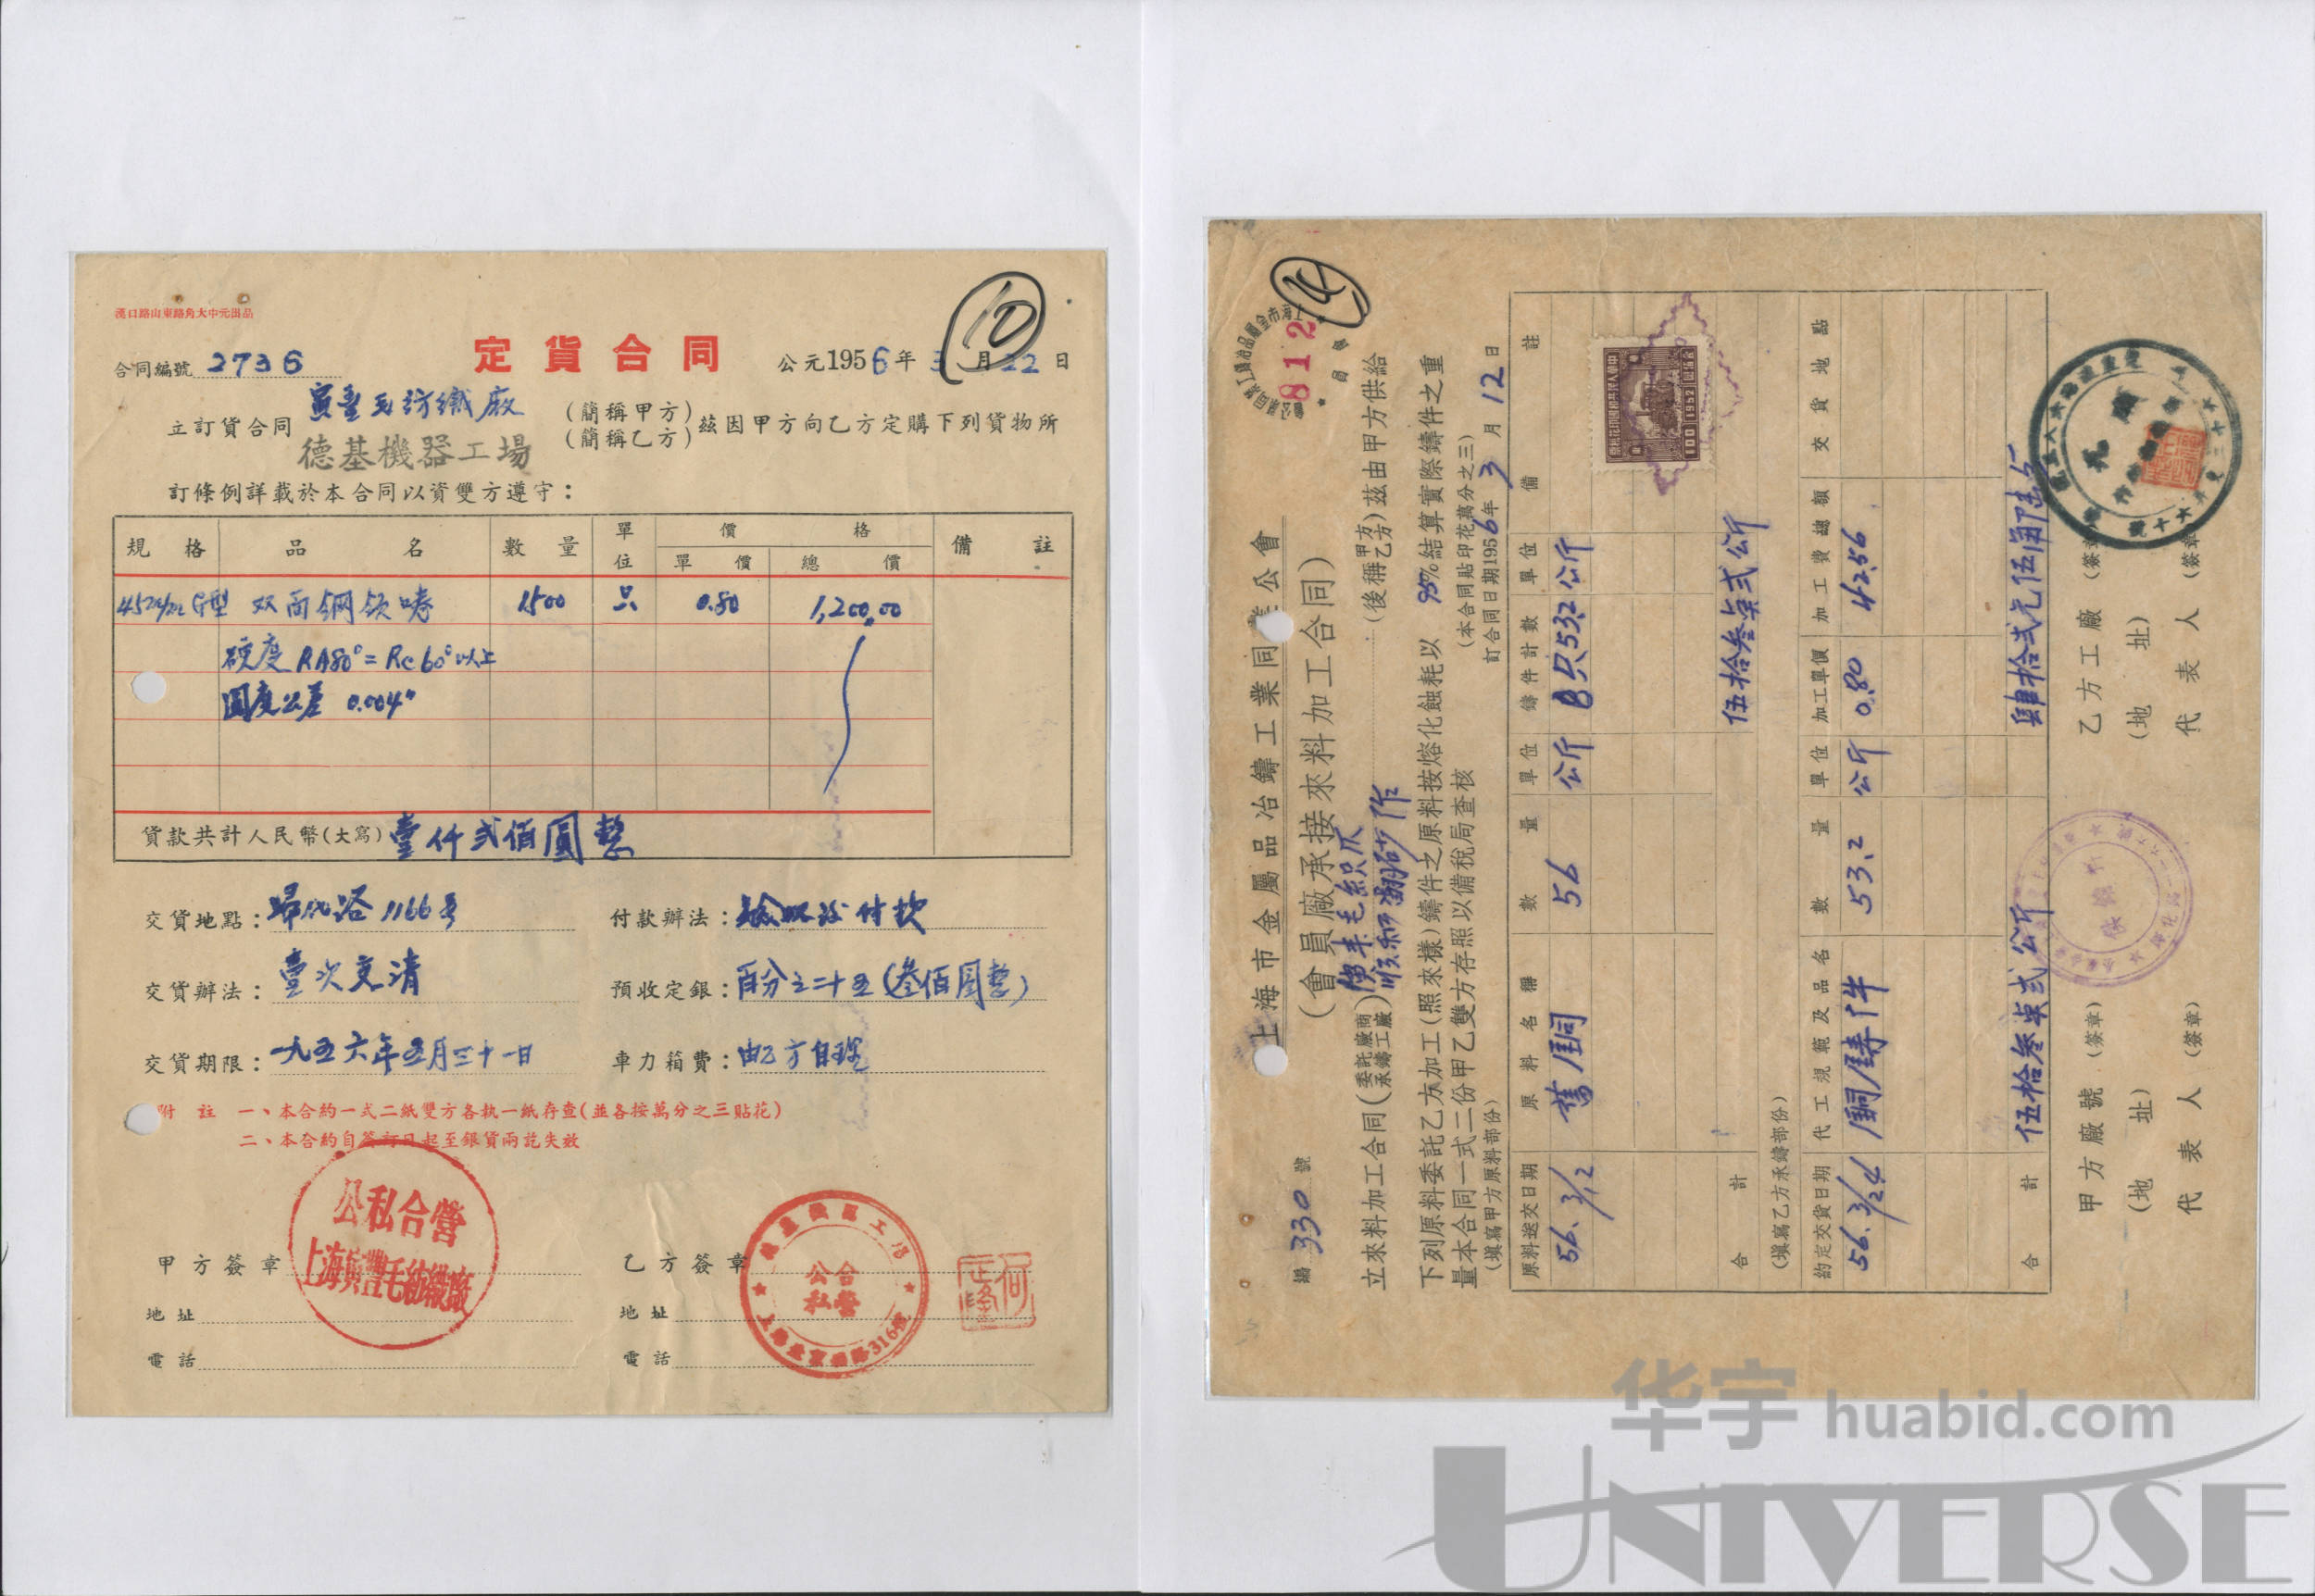 漢口路山東路角大中元出品
10
合同編號 2736
定貨合同
公元1956年3月22日
立訂貨合同 寅豐毛紡織廠 (簡稱甲方)
德基機器工場 (簡稱乙方)
茲因甲方向乙方定購下列貨物所
訂條例詳載於本合同以資雙方遵守：
規格 品名 數量 單位 價格 備註
單價 總價
45m/m G型 双面鋼領 1500 只 0.80 1,200.00
硬度 RA80°=Rc60°以上
圓度公差 0.004"
貨款共計人民幣(大寫) 壹仟貳佰圓整
交貨地點： 1166号
付款辦法： 付款
交貨辦法：壹次交清
預收定銀：百分之二十五(叁佰圓整)
交貨期限：一九五六年五月三十一日
車力箱費：由乙方自理
附註 一、本合約一式二紙雙方各執一紙存查(並各按萬分之三貼花)
二、本合約自簽訂日起至銀貨兩訖失效
公私合營
上海寅豐毛紡織廠
甲方簽章
地址
電話
乙方簽章
地址
電話
德基機器工場
公私合營
316號
上海市金屬品冶鑄工業同業公會
(會員廠承接來料加工合同)
8812
14
編 330 號
立來料加工合同(委託廠商 承鑄工廠) 翻砂作 (後稱甲方 乙方)茲由甲方供給
下列原料委託乙方加工(照來樣)鑄件之原料按熔化蝕耗以 95% 結算實際鑄件之重
量本合同一式二份甲乙雙方存照以備稅局查核
(本合同貼印花萬分之三)
(填寫甲方原料部份)
訂合同日期1956年3月12日
原料送交日期 原料名稱 數量 單位 鑄件計數 單位 備註
56.3/12 舊銅 56 公斤 53.2 公斤
合計 伍拾叁點貳公斤
中華人民共和國印花稅票
1952
(填寫乙方承鑄部份)
約定交貨日期 代工規範及品名 數量 單位 加工單價 加工費總額 交貨地點
56.3/24 銅鑄件 53.2 公斤 0.80 42.56
合計 伍拾叁點貳公斤 肆拾貳元伍角陸分
甲方廠號 (簽章)
(地址)
代表人 (簽章)
乙方工廠 (簽章)
(地址)
代表人 (簽章)
华宇 huabid.com
UNIVERSE